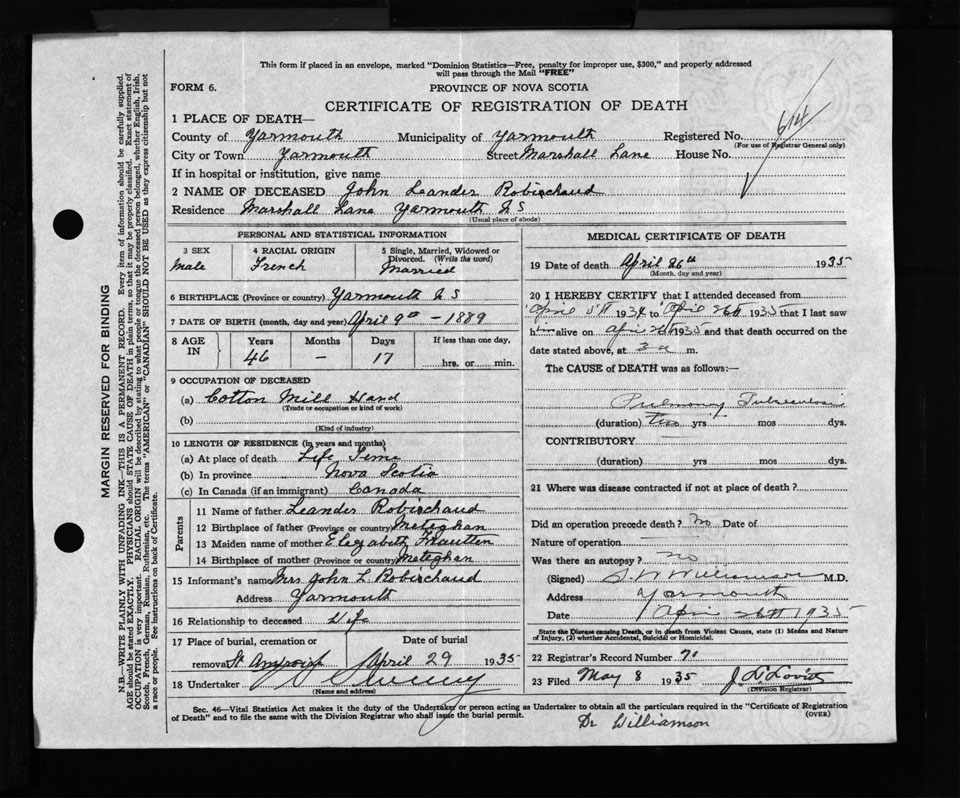 This form if placed in an envelope, marked "Dominion Statistics—Free, penalty for improper use, $300," and properly addressed
will pass through the Mail "FREE"
FORM 6.
PROVINCE OF NOVA SCOTIA
CERTIFICATE OF REGISTRATION OF DEATH
1 PLACE OF DEATH—
County of Yarmouth Municipality of Yarmouth Registered No. 614
(For use of Registrar General only)
City or Town Yarmouth Street Marshall Lane House No.
If in hospital or institution, give name
2 NAME OF DECEASED John Leander Robirchaud
Residence Marshall Lane Yarmouth N S
(Usual place of abode)
PERSONAL AND STATISTICAL INFORMATION
3 SEX 4 RACIAL ORIGIN 5 Single, Married, Widowed or
Divorced. (Write the word)
Male French Married
6 BIRTHPLACE (Province or country) Yarmouth N S
7 DATE OF BIRTH (month, day and year) April 9th – 1889
8 AGE IN Years Months Days If less than one day,
46 – 17 hrs. or min.
9 OCCUPATION OF DECEASED
(a) Cotton Mill Hand
(Trade or occupation or kind of work)
(b)
(Kind of industry)
10 LENGTH OF RESIDENCE (in years and months)
(a) At place of death Life Time
(b) In province Nova Scotia
(c) In Canada (if an immigrant) Canada
Parents
11 Name of father Leander Robirchaud
12 Birthplace of father (Province or country) Meteghan
13 Maiden name of mother Elezabeth
14 Birthplace of mother (Province or country) Meteghan
15 Informant's name Mrs John L Robirchaud
Address Yarmouth
16 Relationship to deceased Wife
17 Place of burial, cremation or Date of burial
removal St April 29 1935
18 Undertaker
(Name and address)
MEDICAL CERTIFICATE OF DEATH
19 Date of death April 26th 1935
(Month, day and year)
20 I HEREBY CERTIFY that I attended deceased from
April 5th 1934 to April 26th 1935 that I last saw
him alive on April 26th 1935 and that death occurred on
date stated above, at 3 a m.
The CAUSE of DEATH was as follows:—
Pulmonary Tuberculosis
(duration) two yrs mos dys.
CONTRIBUTORY
(duration) yrs mos dys.
21 Where was disease contracted if not at place of death?
Did an operation precede death? No Date of
Nature of operation
Was there an autopsy? no
(Signed) Williamson M.D.
Address Yarmouth
Date April 26th 1935
State the Disease causing Death, or in death from Violent Causes, state (1) Means and Nature
of Injury, (2) whether Accidental, Suicidal or Homicidal.
22 Registrar's Record Number 71
23 Filed May 8 1935 J. L. Lovitt
(Division Registrar)
Sec. 46—Vital Statistics Act makes it the duty of the Undertaker or person acting as Undertaker to obtain all the particulars required in the "Certificate of Registration
of Death" and to file the same with the Division Registrar who shall issue the burial permit.
(OVER)
Dr Williamson
MARGIN RESERVED FOR BINDING
N.B.—WRITE PLAINLY WITH UNFADING INK—THIS IS A PERMANENT RECORD. Every item of information should be carefully supplied.
AGE should be stated EXACTLY. PHYSICIANS should STATE CAUSE OF DEATH in plain terms, so that it may be properly classified. Exact statement of
OCCUPATION is very important. RACIAL ORIGIN will be described by stating to what people or tongue the deceased person belonged, whether English, Irish,
Scotch, French, German, Russian, Ruthenian, etc. The terms "AMERICAN" or "CANADIAN" SHOULD NOT BE USED as they express citizenship but not
a race or people. See instructions on back of Certificate.